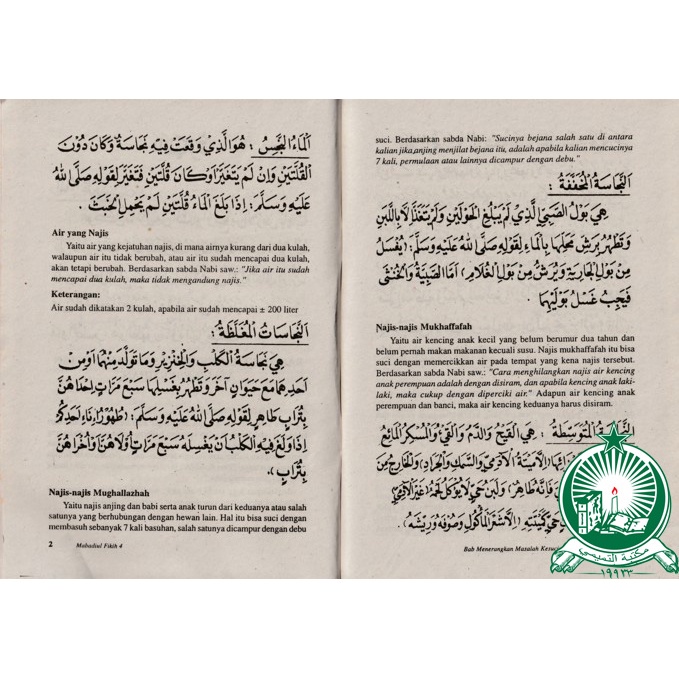 اَلْمَاءُ النَّجِسُ : هُوَ الَّذِيْ وَقَعَتْ فِيْهِ نَجَاسَةٌ وَكَانَ دُوْنَ
الْقُلَّتَيْنِ وَاِنْ لَمْ يَتَغَيَّرْ اَوْ كَانَ قُلَّتَيْنِ فَتَغَيَّرَ لِقَوْلِهِ صَلَّى اللهُ
عَلَيْهِ وَسَلَّمَ : اِذَا بَلَغَ الْمَاءُ قُلَّتَيْنِ لَمْ يَحْمِلِ الْخَبَثَ .
Air yang Najis
Yaitu air yang kejatuhan najis, di mana airnya kurang dari dua kulah,
walaupun air itu tidak berubah, atau air itu sudah mencapai dua kulah,
akan tetapi berubah. Berdasarkan sabda Nabi saw.: "Jika air itu sudah
mencapai dua kulah, maka tidak mengandung najis."
Keterangan:
Air sudah dikatakan 2 kulah, apabila air sudah mencapai ± 200 liter
اَلنَّجَاسَاتُ الْمُغَلَّظَةُ :
هِيَ نَجَاسَةُ الْكَلْبِ وَالْخِنْزِيْرِ وَمَا تَوَلَّدَ مِنْهُمَا اَوْ مِنْ
اَحَدِهِمَا مَعَ حَيَوَانٍ آخَرَ وَتَطْهُرُ بِغَسْلِهَا سَبْعَ مَرَّاتٍ اِحْدَاهُنَّ
بِتُرَابٍ طَاهِرٍ لِقَوْلِهِ صَلَّى اللهُ عَلَيْهِ وَسَلَّمَ : (طُهُوْرُ اِنَاءِ اَحَدِكُمْ
اِذَا وَلَغَ فِيْهِ الْكَلْبُ اَنْ يَغْسِلَهُ سَبْعَ مَرَّاتٍ اُوْلَاهُنَّ وَاُخْرَاهُنَّ
بِتُرَابٍ).
Najis-najis Mughallazhah
Yaitu najis anjing dan babi serta anak turun dari keduanya atau salah
satunya yang berhubungan dengan hewan lain. Hal itu bisa suci dengan
membasuh sebanyak 7 kali basuhan, salah satunya dicampur dengan debu
2 Mabadiul Fikih 4
suci. Berdasarkan sabda Nabi: "Sucinya bejana salah satu di antara
kalian jika,anjing menjilat bejana itu, adalah apabila kalian mencucinya
7 kali, permulaan atau lainnya dicampur dengan debu."
اَلنَّجَاسَةُ الْمُخَفَّفَةُ :
هِيَ بَوْلُ الصَّبِيِّ الَّذِيْ لَمْ يَبْلُغِ الْحَوْلَيْنِ وَلَمْ يَتَغَذَّ اِلَّا بِاللَّبَنِ
وَتَطْهُرُ بِرَشِّ مَحَلِّهَا بِالْمَاءِ لِقَوْلِهِ صَلَّى اللهُ عَلَيْهِ وَسَلَّمَ : (يُغْسَلُ
مِنْ بَوْلِ الْجَارِيَةِ وَيُرَشُّ مِنْ بَوْلِ الْغُلَامِ) اَمَّا الصَّبِيَّةُ وَالْخُنْثَى
فَيَجِبُ غَسْلُ بَوْلَيْهِمَا .
Najis-najis Mukhaffafah
Yaitu air kencing anak kecil yang belum berumur dua tahun dan
belum pernah makan makanan kecuali susu. Najis mukhaffafah itu bisa
suci dengan memercikkan air pada tempat yang kena najis tersebut.
Berdasarkan sabda Nabi saw.: "Cara menghilangkan najis air kencing
anak perempuan adalah dengan disiram, dan apabila kencing anak laki-
laki, maka cukup dengan diperciki air." Adapun air kencing anak
perempuan dan banci, maka air kencing keduanya harus disiram.
الْمُتَوَسِّطَةُ : هِيَ الْقَيْحُ وَالدَّمُ وَالْقَيْءُ وَالْمُسْكِرُ الْمَائِعُ
(اِلَّا مَيْتَةَ الْآدَمِيِّ وَالسَّمَكِ وَالْجَرَادِ) وَالْخَارِجُ مِنَ
فَاِنَّهُ طَاهِرٌ) وَلَبَنُ حَيٍّ لَا يُؤْكَلُ لَحْمُهُ (غَيْرَ الْآدَمِيِّ)
حَيٍّ كَمَيْتَتِهِ (اِلَّا شَعْرَ الْمَأْكُوْلِ وَصُوْفَهُ وَرِيْشَهُ) .
Bab Menerangkan Masalah
١٩٩٣